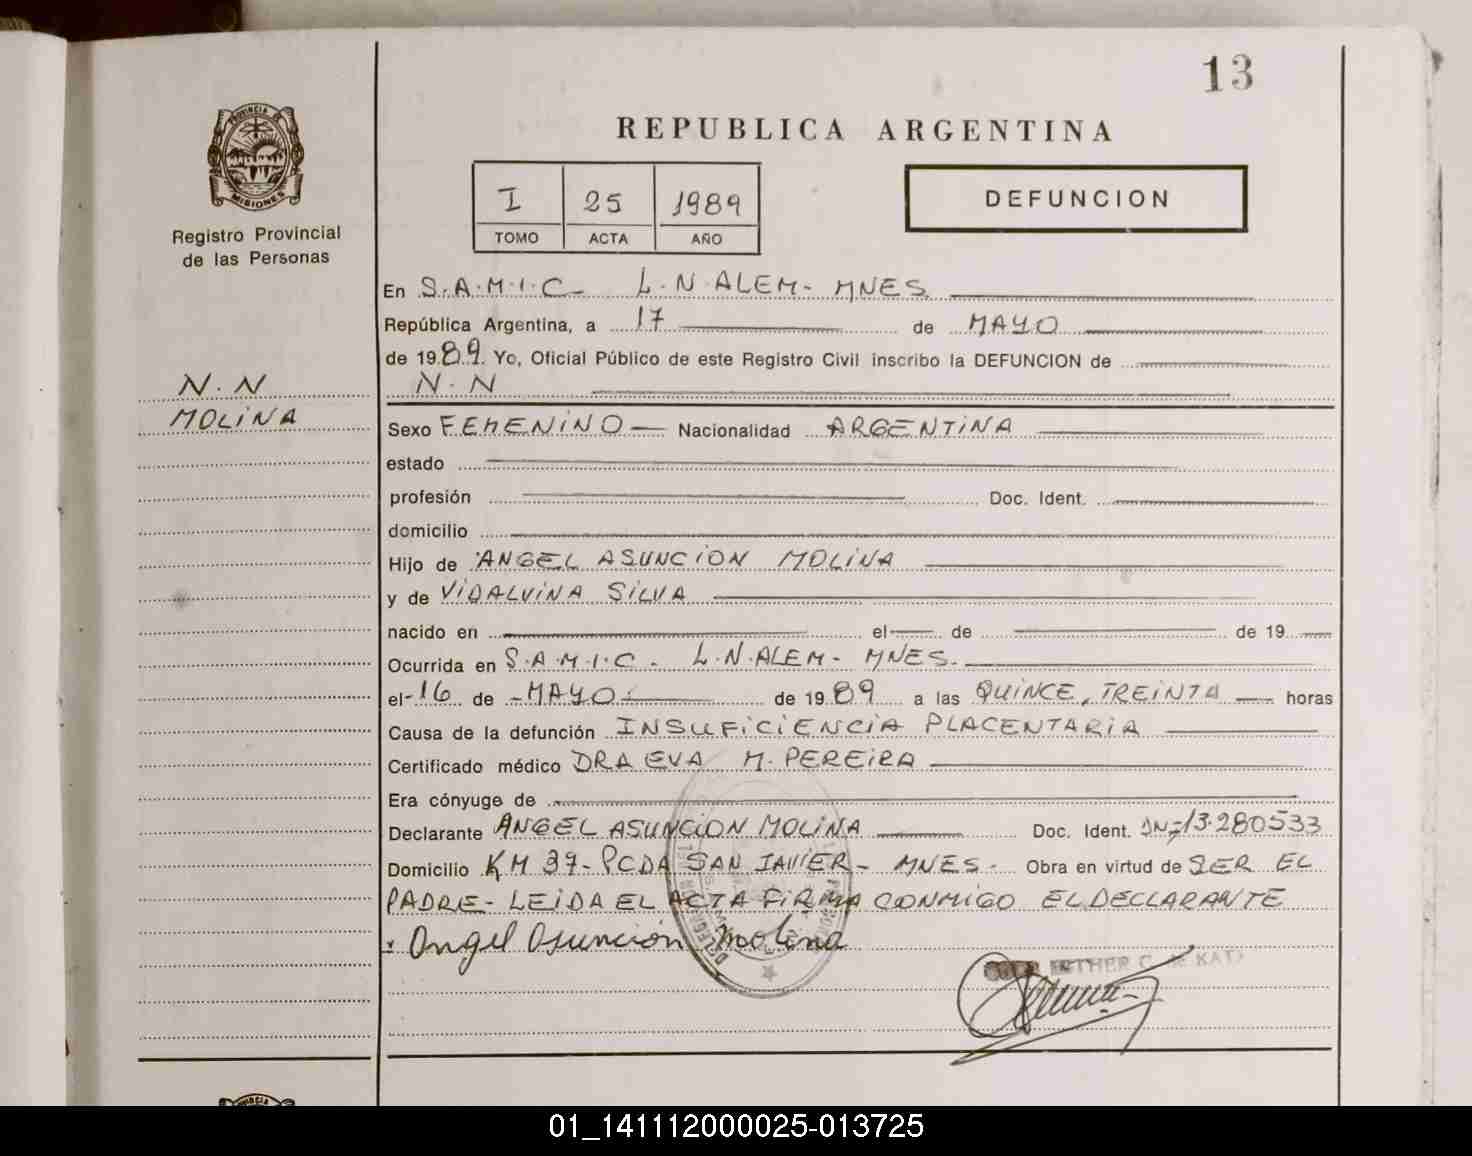 13
PROVINCIA DE
MISIONES
Registro Provincial
de las Personas
N. N
MOLINA
REPUBLICA ARGENTINA
I 25 1989
TOMO ACTA AÑO
DEFUNCION
En S.A.M.I.C- L.N.ALEM- MNES
República Argentina, a 17 de MAYO
de 1989. Yo, Oficial Público de este Registro Civil inscribo la DEFUNCION de
N. N
Sexo FEMENINO Nacionalidad ARGENTINA
estado
profesión Doc. Ident.
domicilio
Hijo de ANGEL ASUNCION MOLINA
y de VIDALVINA SILVA
nacido en el de de 19
Ocurrida en S.A.M.I.C. L.N.ALEM- MNES.
el-16 de -MAYO- de 1989 a las QUINCE, TREINTA horas
Causa de la defunción INSUFICIENCIA PLACENTARIA
Certificado médico DRA EVA M. PEREIRA
Era cónyuge de
Declarante ANGEL ASUNCION MOLINA Doc. Ident. 13.280533
Domicilio KM 37- PCDA SAN JAVIER- MNES- Obra en virtud de SER EL
PADRE- LEIDA EL ACTA FIRMA CONMIGO EL DECLARANTE
Angel Asunción Molina
ESTHER C. de
01_141112000025-013725